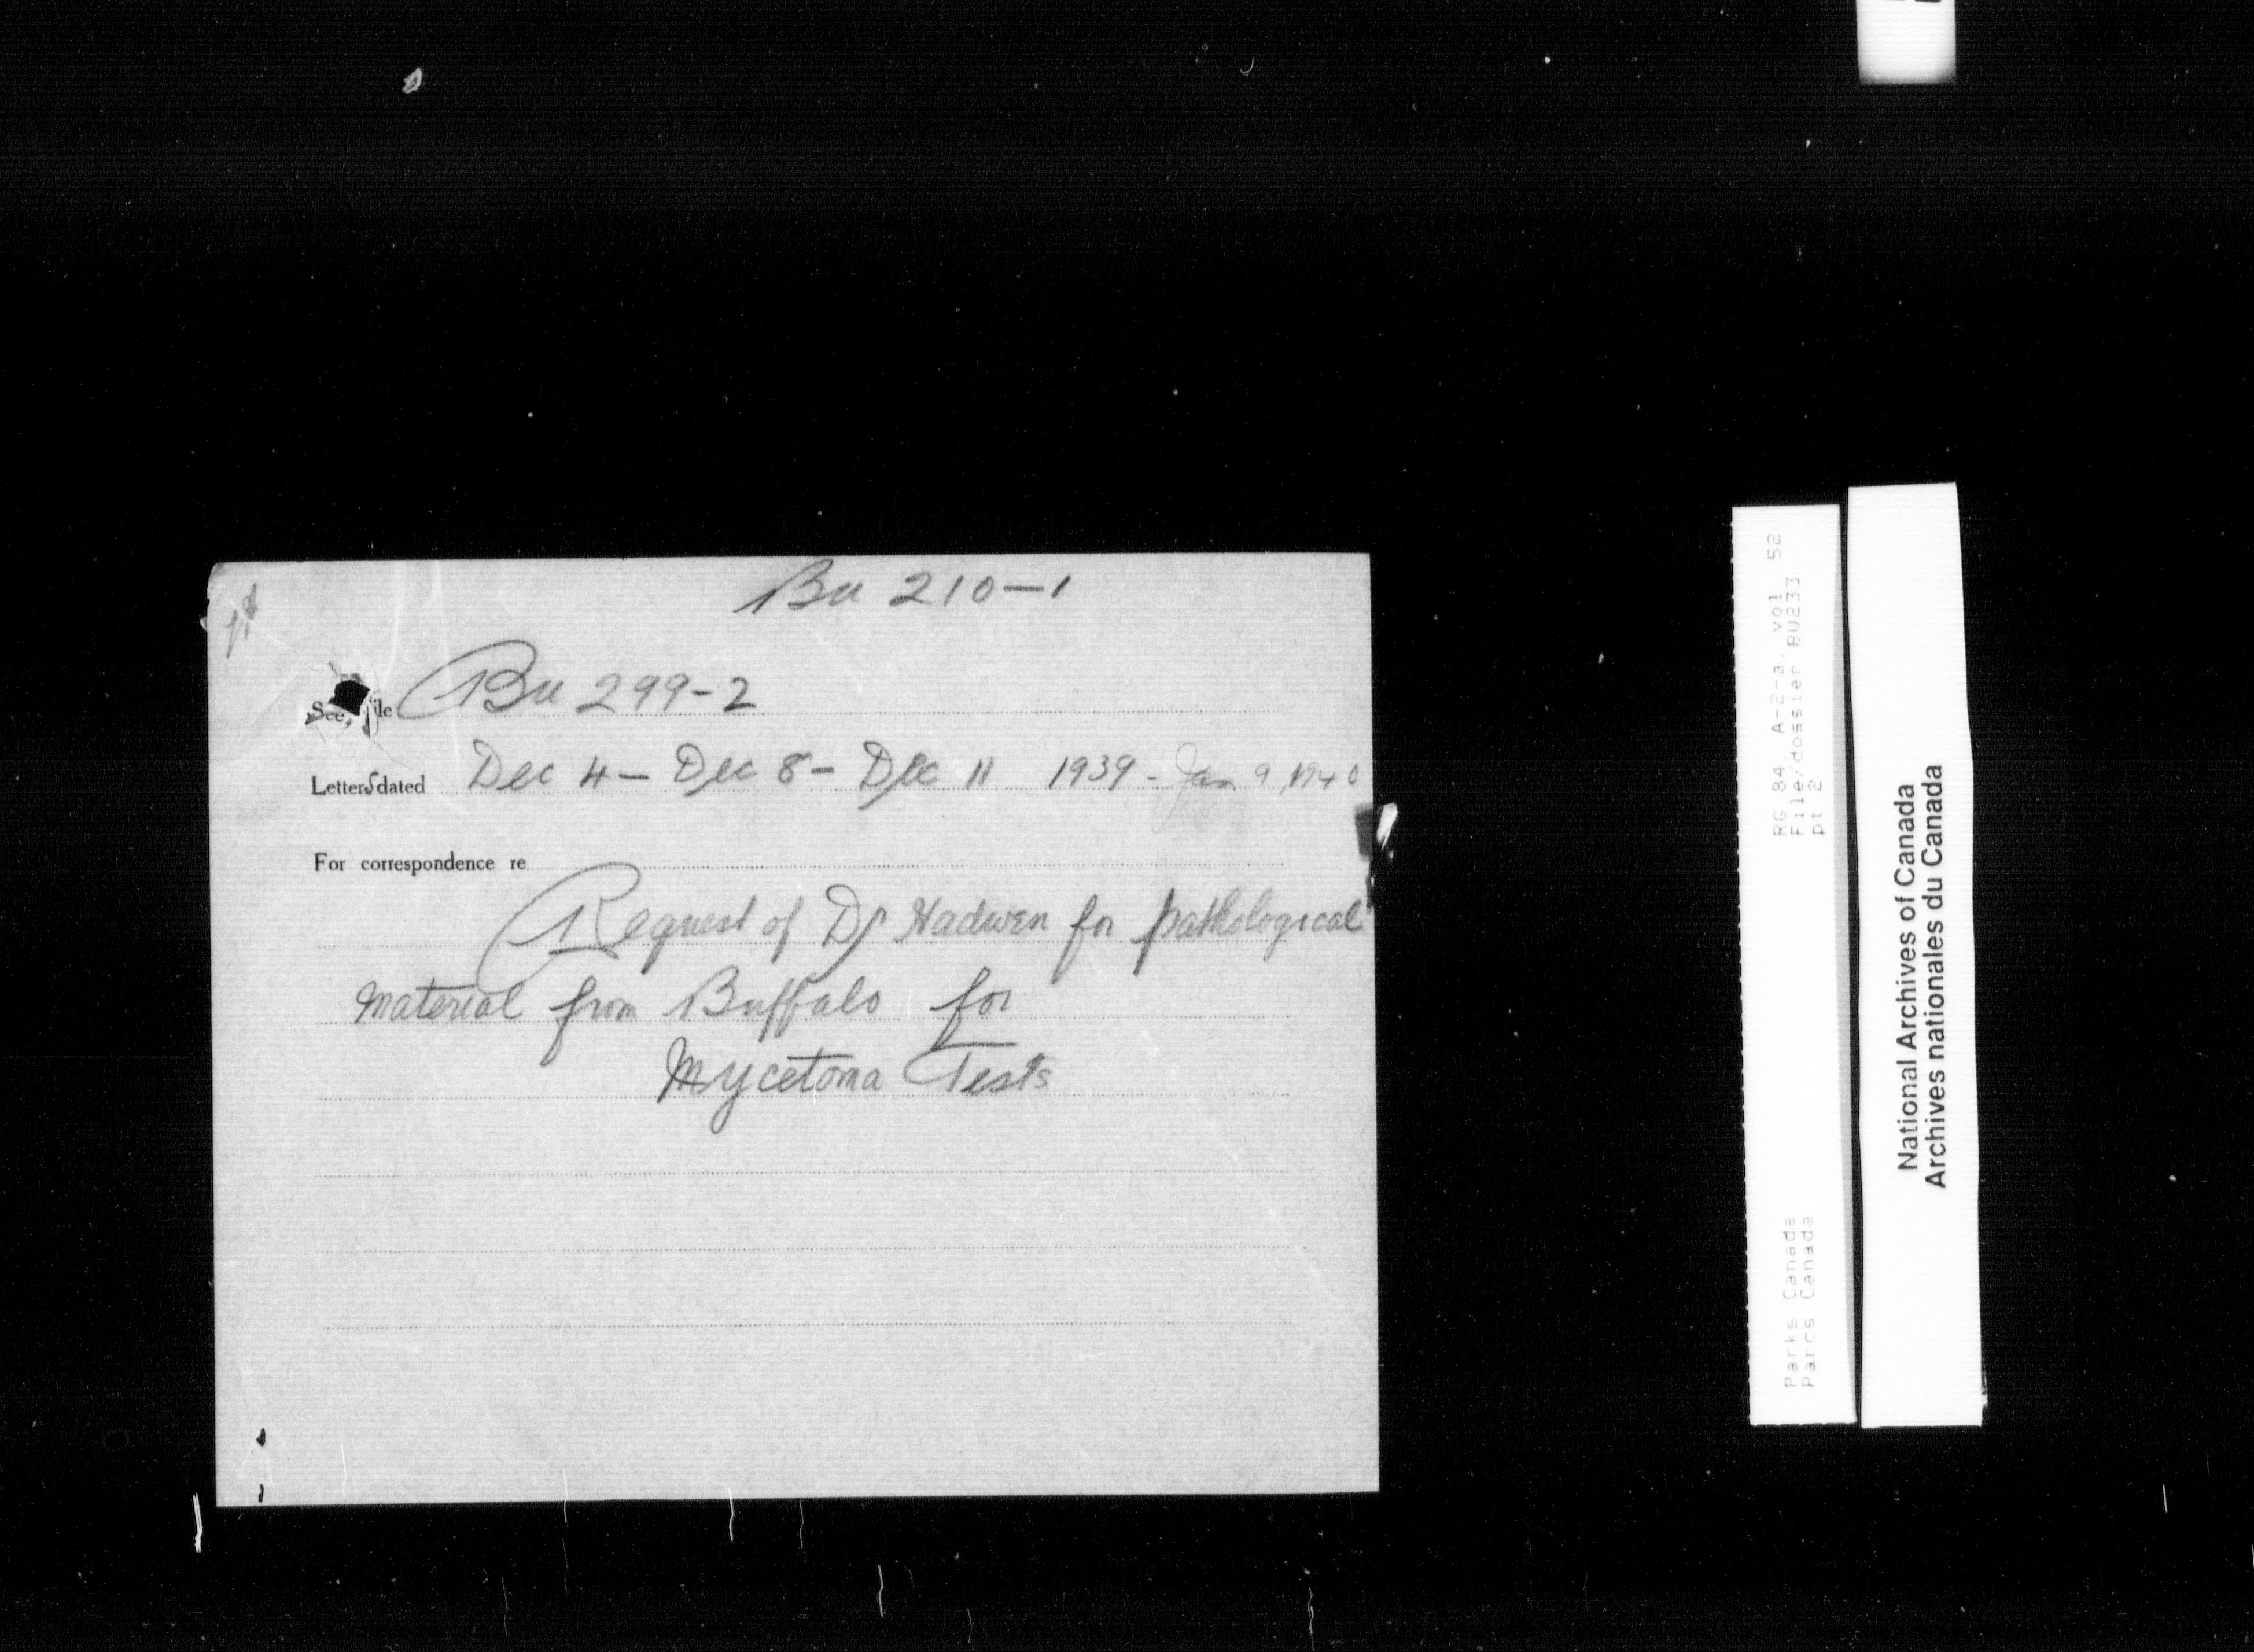 Bu 210-1
See file Bu 299-2
Letters dated Dec 4 - Dec 8 - Dec 11 1939 - Jan 9, 1940
For correspondence re
Request of Dr Hadwen for pathological
material from Buffalo for
Mycetoma Tests
RG 84, A-2-a, vol 52
File/dossier BU233
pt 2
Parks Canada
Parcs Canada
National Archives of Canada
Archives nationales du Canada